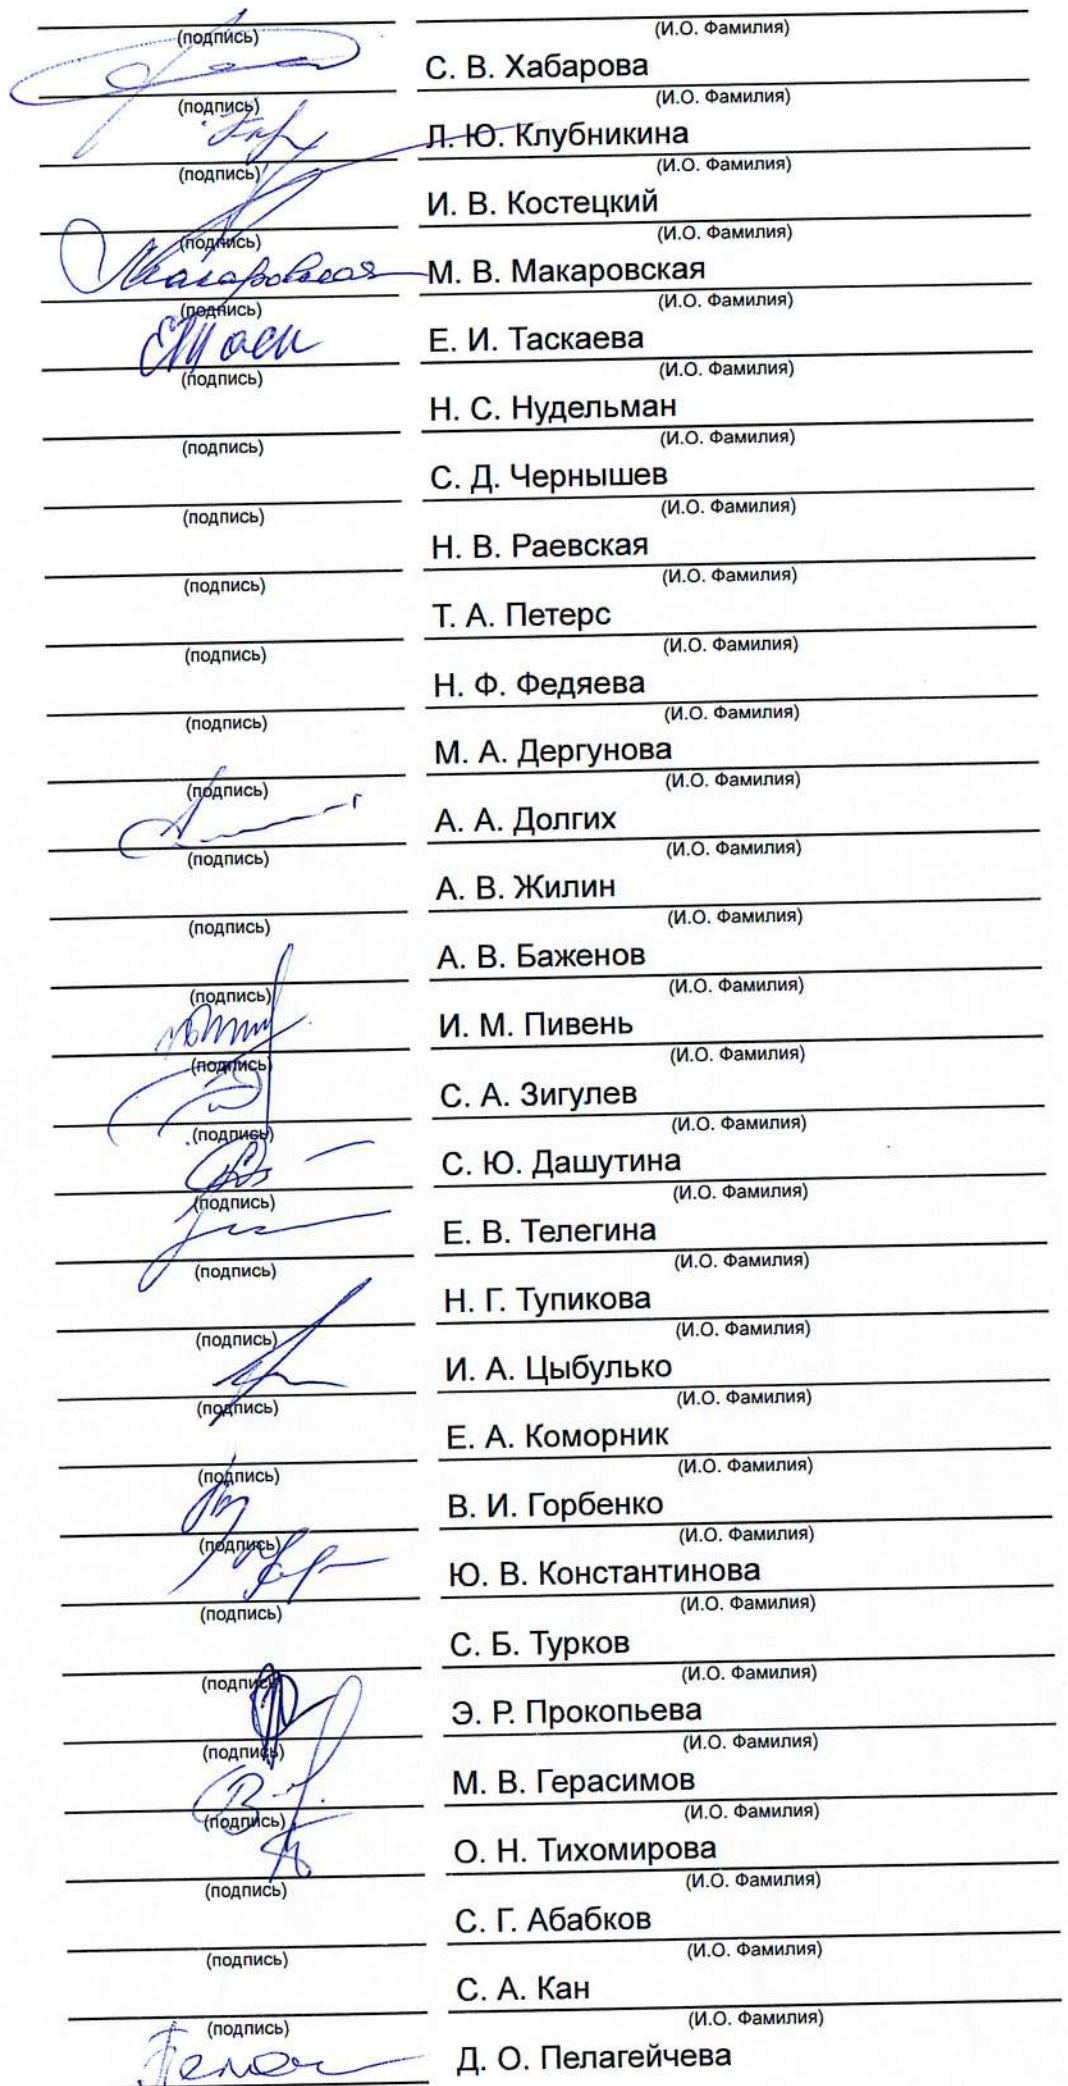 (подпись) (И.О. Фамилия)
С. В. Хабарова
(подпись) (И.О. Фамилия)
Л. Ю. Клубникина
(подпись) (И.О. Фамилия)
И. В. Костецкий
(подпись) (И.О. Фамилия)
Макаровская М. В. Макаровская
(подпись) (И.О. Фамилия)
ЕТаск Е. И. Таскаева
(подпись) (И.О. Фамилия)
Н. С. Нудельман
(подпись) (И.О. Фамилия)
С. Д. Чернышев
(подпись) (И.О. Фамилия)
Н. В. Раевская
(подпись) (И.О. Фамилия)
Т. А. Петерс
(подпись) (И.О. Фамилия)
Н. Ф. Федяева
(подпись) (И.О. Фамилия)
М. А. Дергунова
(подпись) (И.О. Фамилия)
А. А. Долгих
(подпись) (И.О. Фамилия)
А. В. Жилин
(подпись) (И.О. Фамилия)
А. В. Баженов
(подпись) (И.О. Фамилия)
И. М. Пивень
(подпись) (И.О. Фамилия)
С. А. Зигулев
(подпись) (И.О. Фамилия)
С. Ю. Дашутина
(подпись) (И.О. Фамилия)
Е. В. Телегина
(подпись) (И.О. Фамилия)
Н. Г. Тупикова
(подпись) (И.О. Фамилия)
И. А. Цыбулько
(подпись) (И.О. Фамилия)
Е. А. Коморник
(подпись) (И.О. Фамилия)
В. И. Горбенко
(подпись) (И.О. Фамилия)
Ю. В. Константинова
(подпись) (И.О. Фамилия)
С. Б. Турков
(подпись) (И.О. Фамилия)
Э. Р. Прокопьева
(подпись) (И.О. Фамилия)
М. В. Герасимов
(подпись) (И.О. Фамилия)
О. Н. Тихомирова
(подпись) (И.О. Фамилия)
С. Г. Абабков
(подпись) (И.О. Фамилия)
С. А. Кан
(подпись) (И.О. Фамилия)
Д. О. Пелагейчева